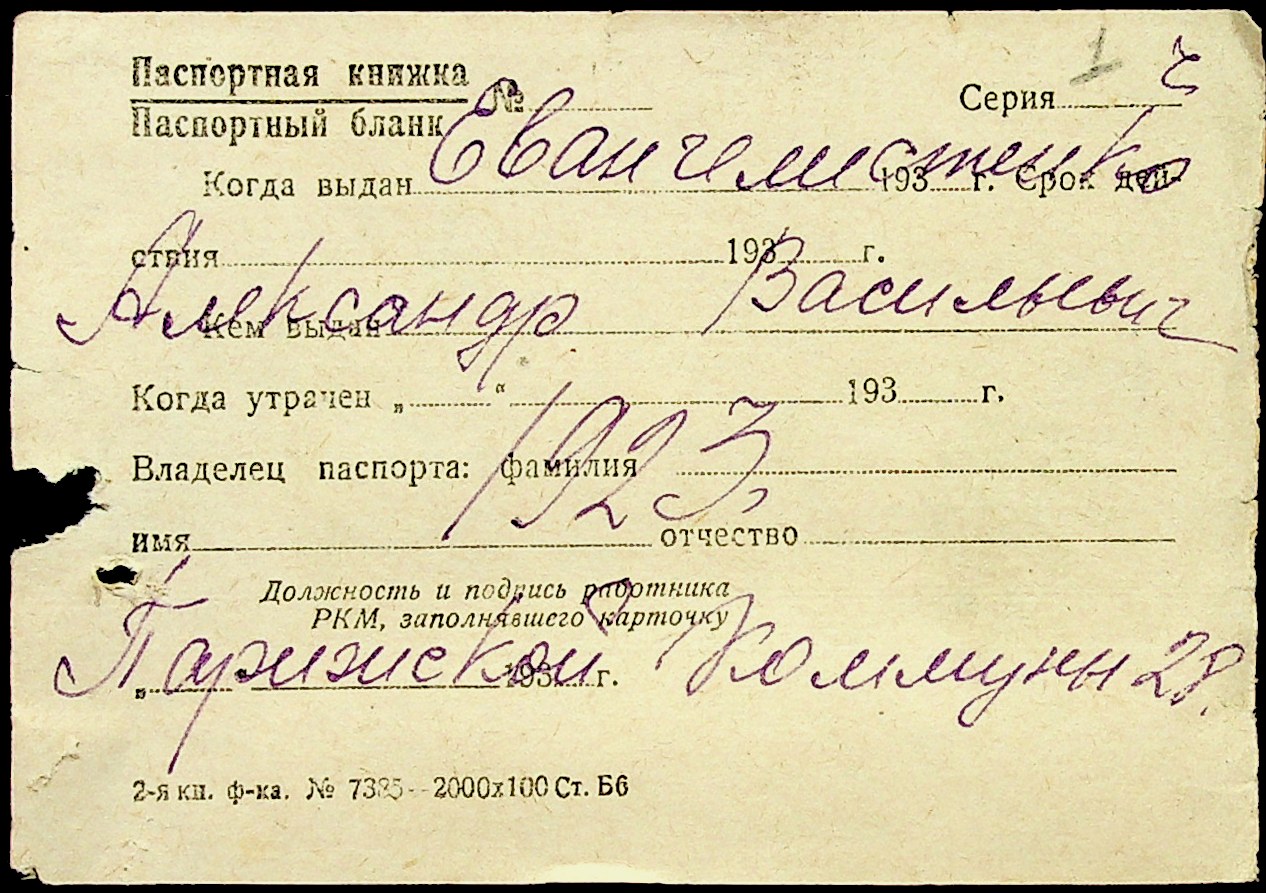 Паспортная книжка № Серия
Паспортный бланк
Евангелистенко
Когда выдан 193 г. Срок дей-
ствия 193 г.
Александр Васильевич
Кем выдан
Когда утрачен „ “ 193 г.
1923
Владелец паспорта: фамилия
имя отчество
Должность и подпись работника
РКМ, заполнявшего карточку
Парижской Коммуны 28.
„ “ 193 г.
2-я кн. ф-ка. № 7385—2000х100 Ст. Б6